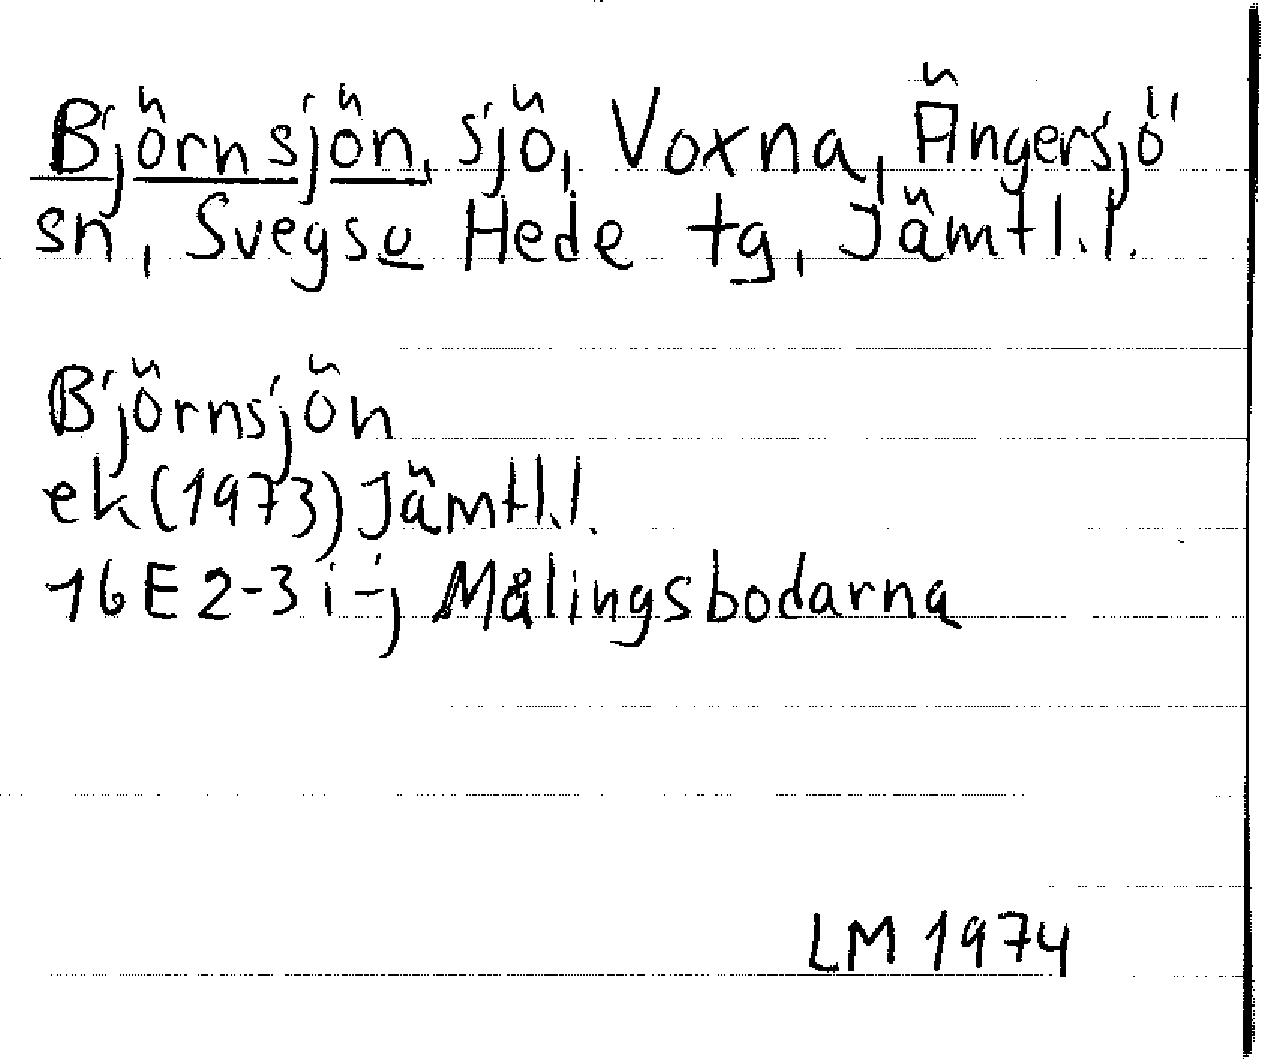 Björnsjön, sjö, Voxna, Ängersjö
sn, Svegs o Hede tg, Jämtl.l.
Björnsjön
ek (1973) Jämtl.l.
16E 2-3 i-j Målingsbodarna
LM 1974